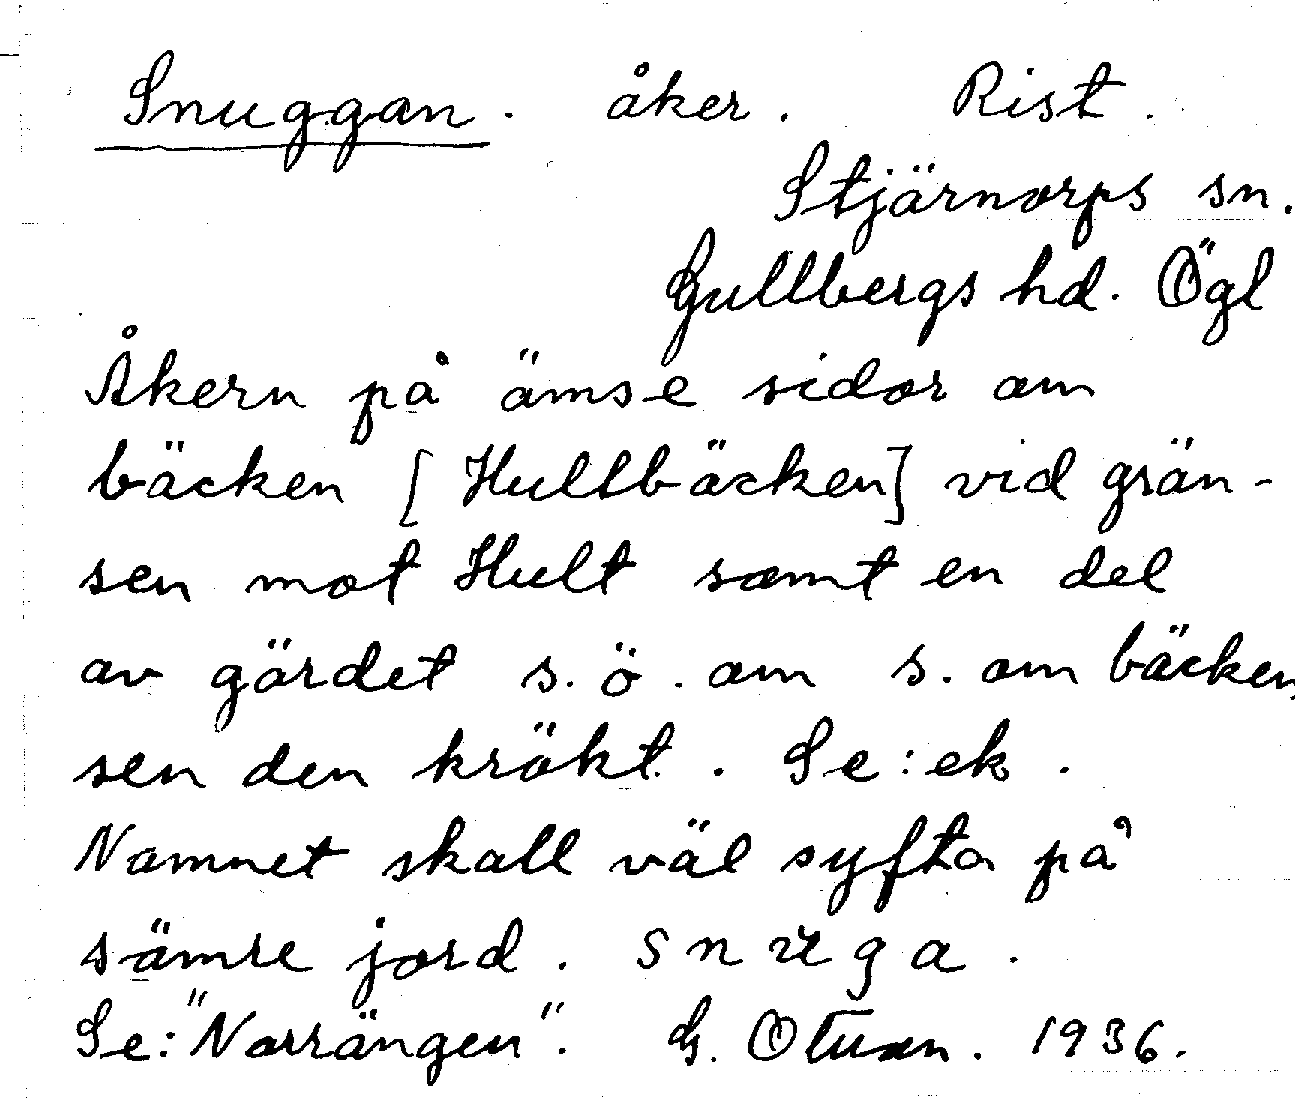 Snuggan. åker. Rist.
Stjärnorps sn.
Gullbergs hd. Ögl
Åkern på ömse sidor om
bäcken [Hultbäcken] vid grän-
sen mot Hult samt en del
av gärdet s. ö. om s. om bäcken,
sen den krökt. Se: ek.
Namnet skall väl syfta på
sämre jord. snuga.
Se: "Norrängen". G. 1936.